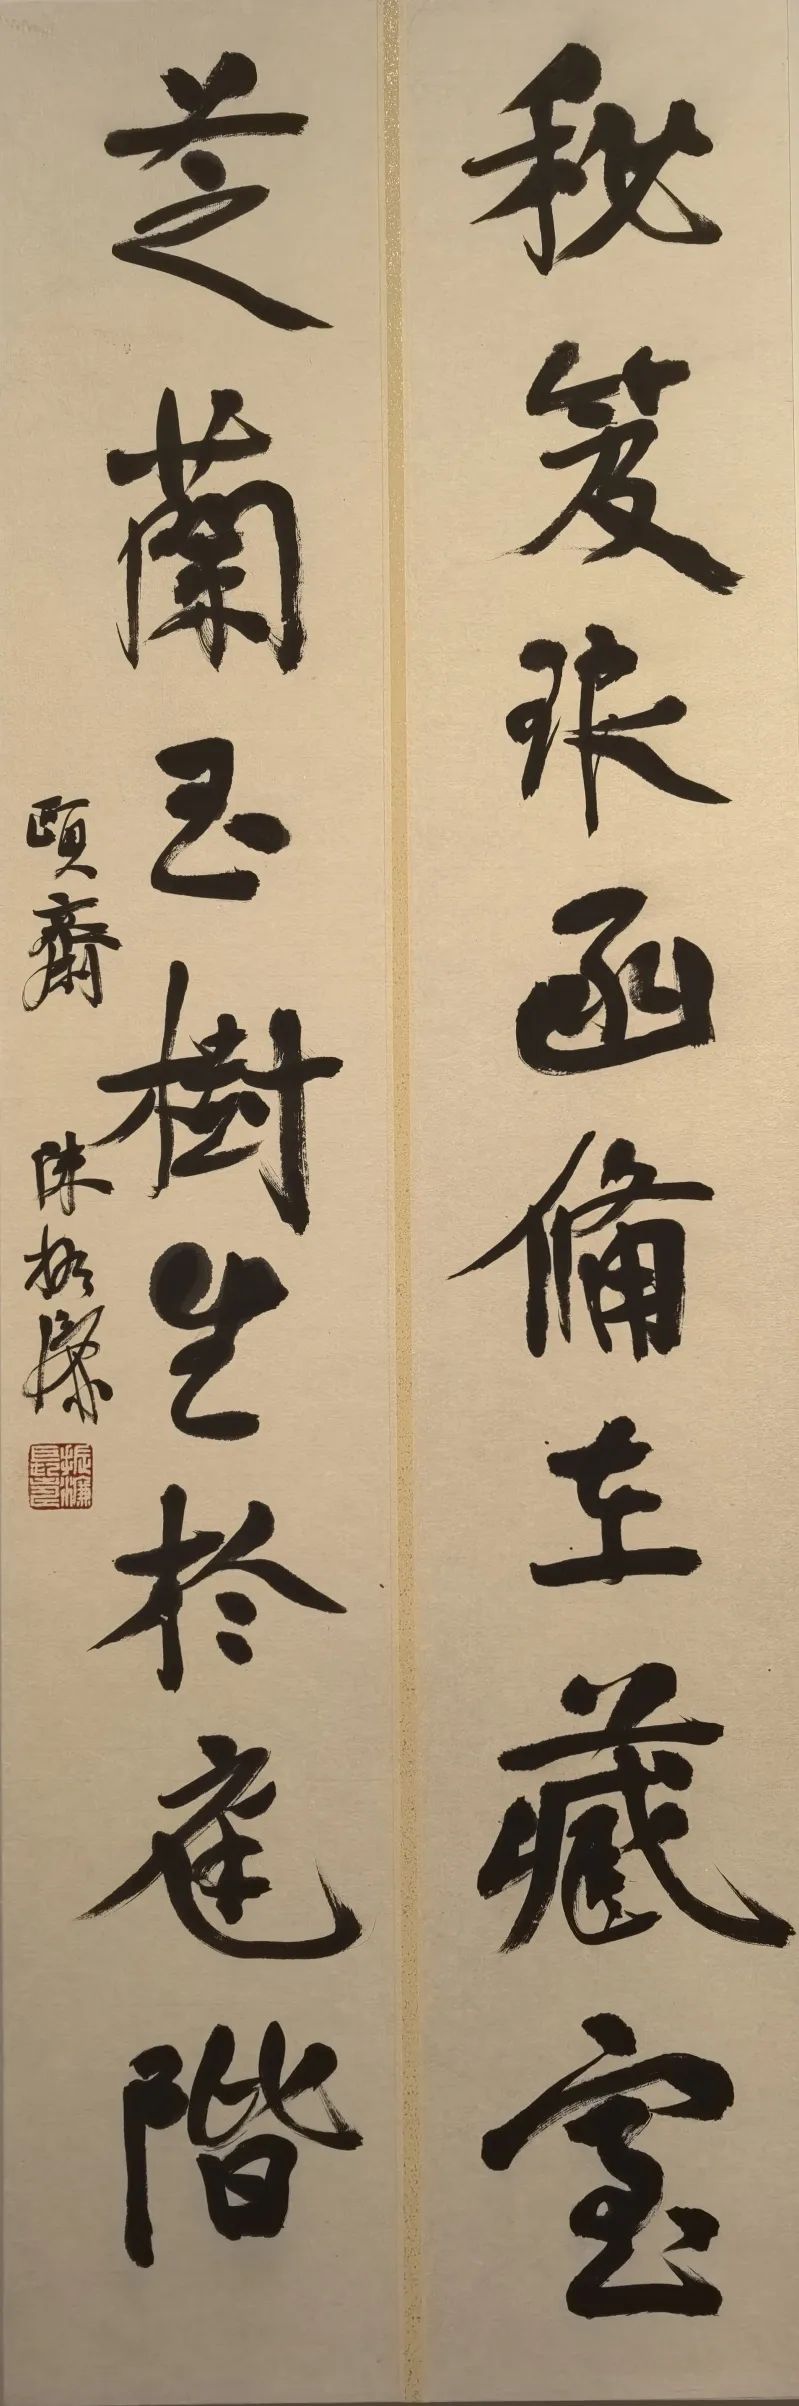 秘笈琅函備在藏室
芝蘭玉樹生於庭階
頤齋
陳振濂